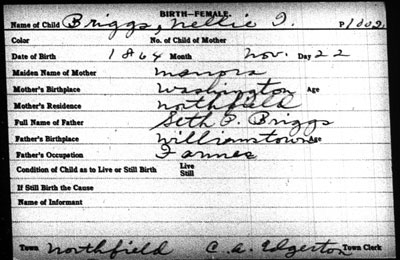 BIRTH—FEMALE.
Name of Child Briggs, Nellie I. P1002
Color No. of Child of Mother
Date of Birth 1864 Month Nov. Day 22
Maiden Name of Mother
Mother's Birthplace Washington Age
Mother's Residence Northfield
Full Name of Father Seth P. Briggs
Father's Birthplace Williamstown Age
Father's Occupation Farmer
Condition of Child as to Live or Still Birth Live
Still
If Still Birth the Cause
Name of Informant
Town Northfield C. A. Edgerton Town Clerk